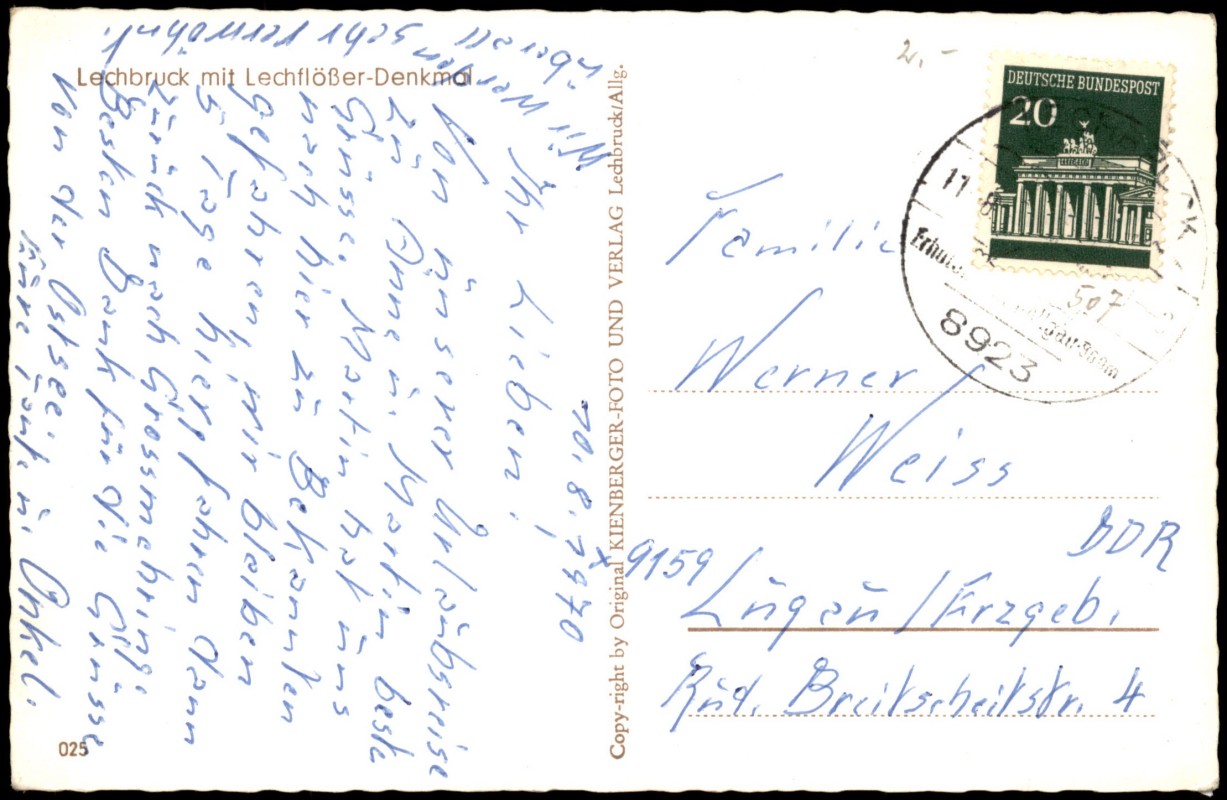 Lechbruck mit Lechflößer-Denkmal
10. 8. 1970
Ihr Lieben!
Von unserer Urlaubsreise
zu Anne u. Martin beste
Grüsse. Martin hat uns
nach hier zu Bekannten
gefahren, wir bleiben
5 Tage hier, fahren dann
zurück nach Grossmehring.
Besten Dank für die Grüsse
von der Ostsee.
Eure Tante u. Onkel.
Wir werden
überall sehr verwöhnt.
025
Copy-right by Original KIENBERGER-FOTO UND VERLAG Lechbruck/Allg.
2,-
DEUTSCHE BUNDESPOST
20
11.8
8923
507
Familie
Werner
Weiss
DDR
x 9159 Lugau/Erzgeb.
Rud. Breitscheitstr. 4